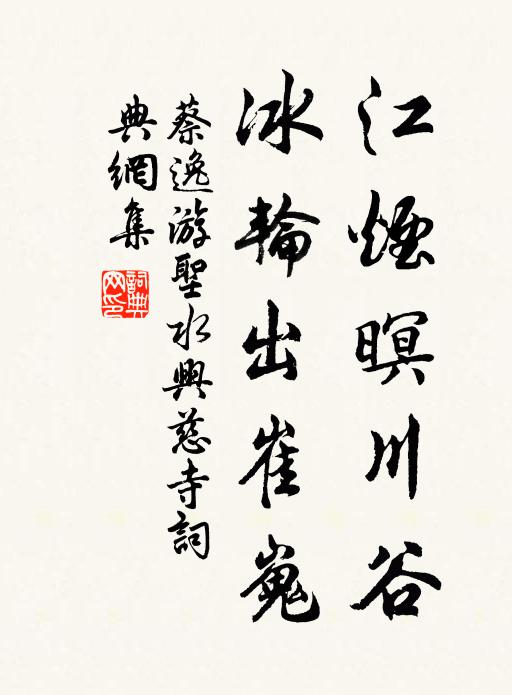 江煙暝川谷
冰輪出崔嵬
蔡逸游聖水興慈寺詞
典網集
詞典网印